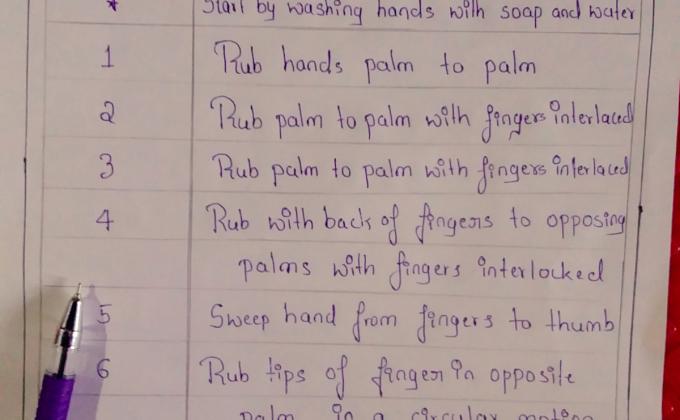 * Start by washing hands with soap and water
1 Rub hands palm to palm
2 Rub palm to palm with fingers interlaced
3 Rub palm to palm with fingers interlaced
4 Rub with back of fingers to opposing
palms with fingers interlocked
5 Sweep hand from fingers to thumb
6 Rub tips of finger in opposite
palm in a circular motion